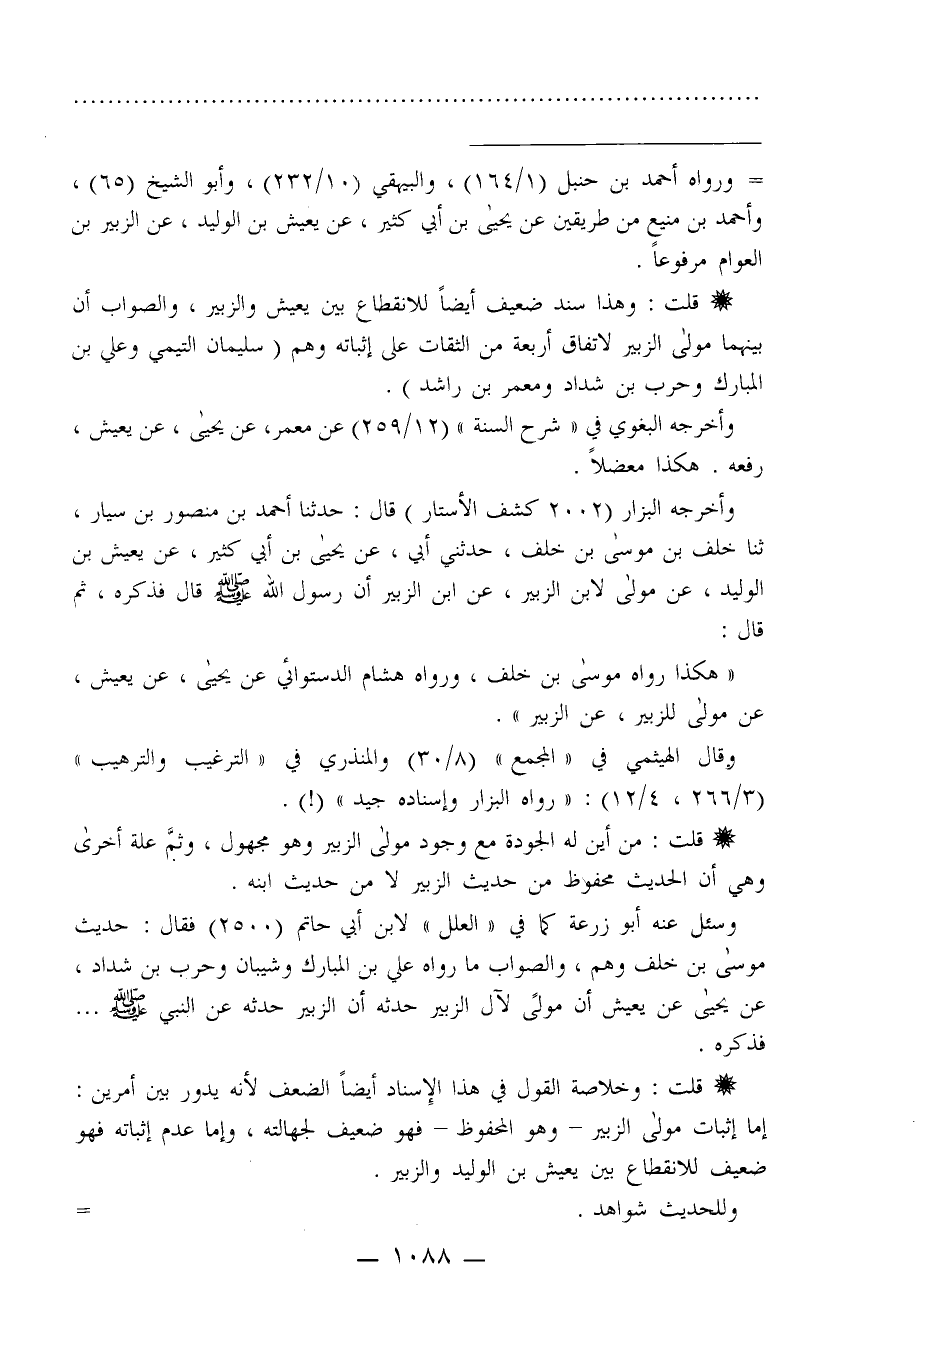 = ورواه أحمد بن حنبل (١/١٦٤) ، والبيهقي (١٠/٢٣٢) ، وأبو الشيخ (٦٥) ،
وأحمد بن منيع من طريقين عن يحيىٰ بن أبي كثير ، عن يعيش بن الوليد ، عن الزبير بن
العوام مرفوعاً .
✹ قلت : وهذا سند ضعيف أيضاً للانقطاع بين يعيش والزبير ، والصواب أن
بينهما مولىٰ الزبير لاتفاق أربعة من الثقات على إثباته وهم ( سليمان التيمي وعلي بن
المبارك وحرب بن شداد ومعمر بن راشد ) .
وأخرجه البغوي في « شرح السنة » (١٢/٢٥٩) عن معمر، عن يحيىٰ ، عن يعيش ،
رفعه . هكذا معضلاً .
وأخرجه البزار (٢٠٠٢ كشف الأستار ) قال : حدثنا أحمد بن منصور بن سيار ،
ثنا خلف بن موسىٰ بن خلف ، حدثني أبي ، عن يحيىٰ بن أبي كثير ، عن يعيش بن
الوليد ، عن مولىٰ لابن الزبير ، عن ابن الزبير أن رسول الله ﷺ قال فذكره ، ثم
قال :
« هكذا رواه موسىٰ بن خلف ، ورواه هشام الدستوائي عن يحيىٰ ، عن يعيش ،
عن مولىٰ للزبير ، عن الزبير » .
وقال الهيثمي في « المجمع » (٨/٣٠) والمنذري في « الترغيب والترهيب »
(٣/٢٦٦ ، ٤/١٢) : « رواه البزار وإسناده جيد » (!) .
✹ قلت : من أين له الجودة مع وجود مولىٰ الزبير وهو مجهول ، وثمَّ علة أخرىٰ
وهي أن الحديث محفوظ من حديث الزبير لا من حديث ابنه .
وسئل عنه أبو زرعة كما في « العلل » لابن أبي حاتم (٢٥٠٠) فقال : حديث
موسىٰ بن خلف وهم ، والصواب ما رواه علي بن المبارك وشيبان وحرب بن شداد ،
عن يحيىٰ عن يعيش أن مولىً لآل الزبير حدثه أن الزبير حدثه عن النبي ﷺ ...
فذكره .
✹ قلت : وخلاصة القول في هذا الإسناد أيضاً الضعف لأنه يدور بين أمرين :
إما إثبات مولىٰ الزبير – وهو المحفوظ – فهو ضعيف لجهالته ، وإما عدم إثباته فهو
ضعيف للانقطاع بين يعيش بن الوليد والزبير .
وللحديث شواهد . =
— ١٠٨٨ —